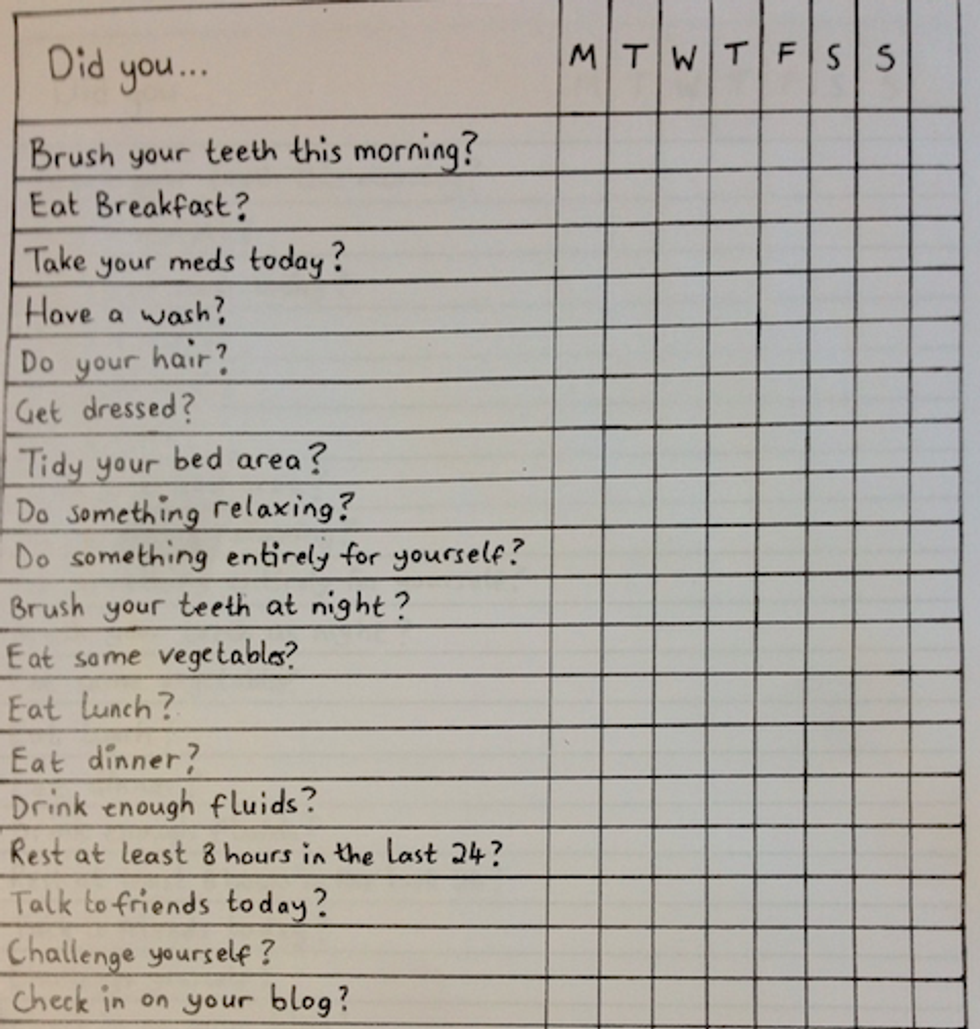 Did you... M T W T F S S
Brush your teeth this morning?
Eat Breakfast?
Take your meds today?
Have a wash?
Do your hair?
Get dressed?
Tidy your bed area?
Do something relaxing?
Do something entirely for yourself?
Brush your teeth at night?
Eat some vegetables?
Eat lunch?
Eat dinner?
Drink enough fluids?
Rest at least 8 hours in the last 24?
Talk to friends today?
Challenge yourself?
Check in on your blog?